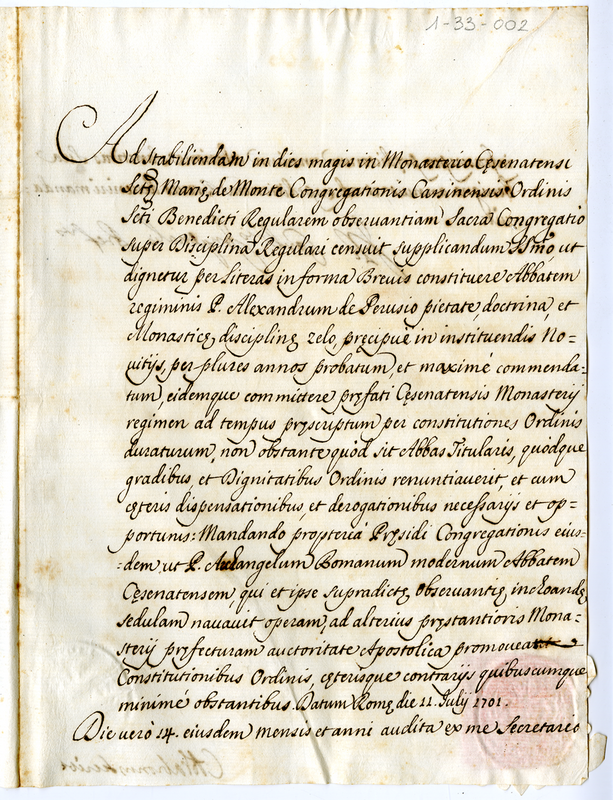 1-33-002
Ad stabiliendam in dies magis in Monasterio Cęsenatensi
Sctę Marię de Monte Congregationis Casinensis Ordinis
Scti Benedicti Regularem observantiam Sacra Congregatio
super Disciplina Regulari censuit supplicandum SSmo, ut
dignetur per literas in forma Brevis constituere Abbatem
regiminis P. Alexandrum de Perusio pietate, doctrina, et
Monasticę disciplinę zelo, pręcipuè in instituendis No=
vitijs, per plures annos probatum, et maximè commenda=
tum, eidemque committere pręfati Cęsenatensis Monasterij
regimen ad tempus pręscriptum per constitutiones Ordinis
duraturum, non obstante quòd sit Abbas Titularis, quodque
gradibus, et Dignitatibus Ordinis renuntiaverit, et cum
cęteris dispensationibus, et derogationibus necessarijs et op=
portunis: Mandando proptereà Pręsidi Congregationis eius=
=dem, ut P. Archangelum Romanum modernum Abbatem
Cęsenatensem, qui et ipse supradictę observantię inchoandę
sedulam navavit operam, ad alterius pręstantioris Mona=
sterij pręfecturam auctoritate Apostolica promoveat
Constitutionibus Ordinis, cęterisque contrarijs quibuscumque
minimè obstantibus. Datum Romę die 11. Julij 1701.
Die verò 14. eiusdem mensis et anni audita ex me Secretario